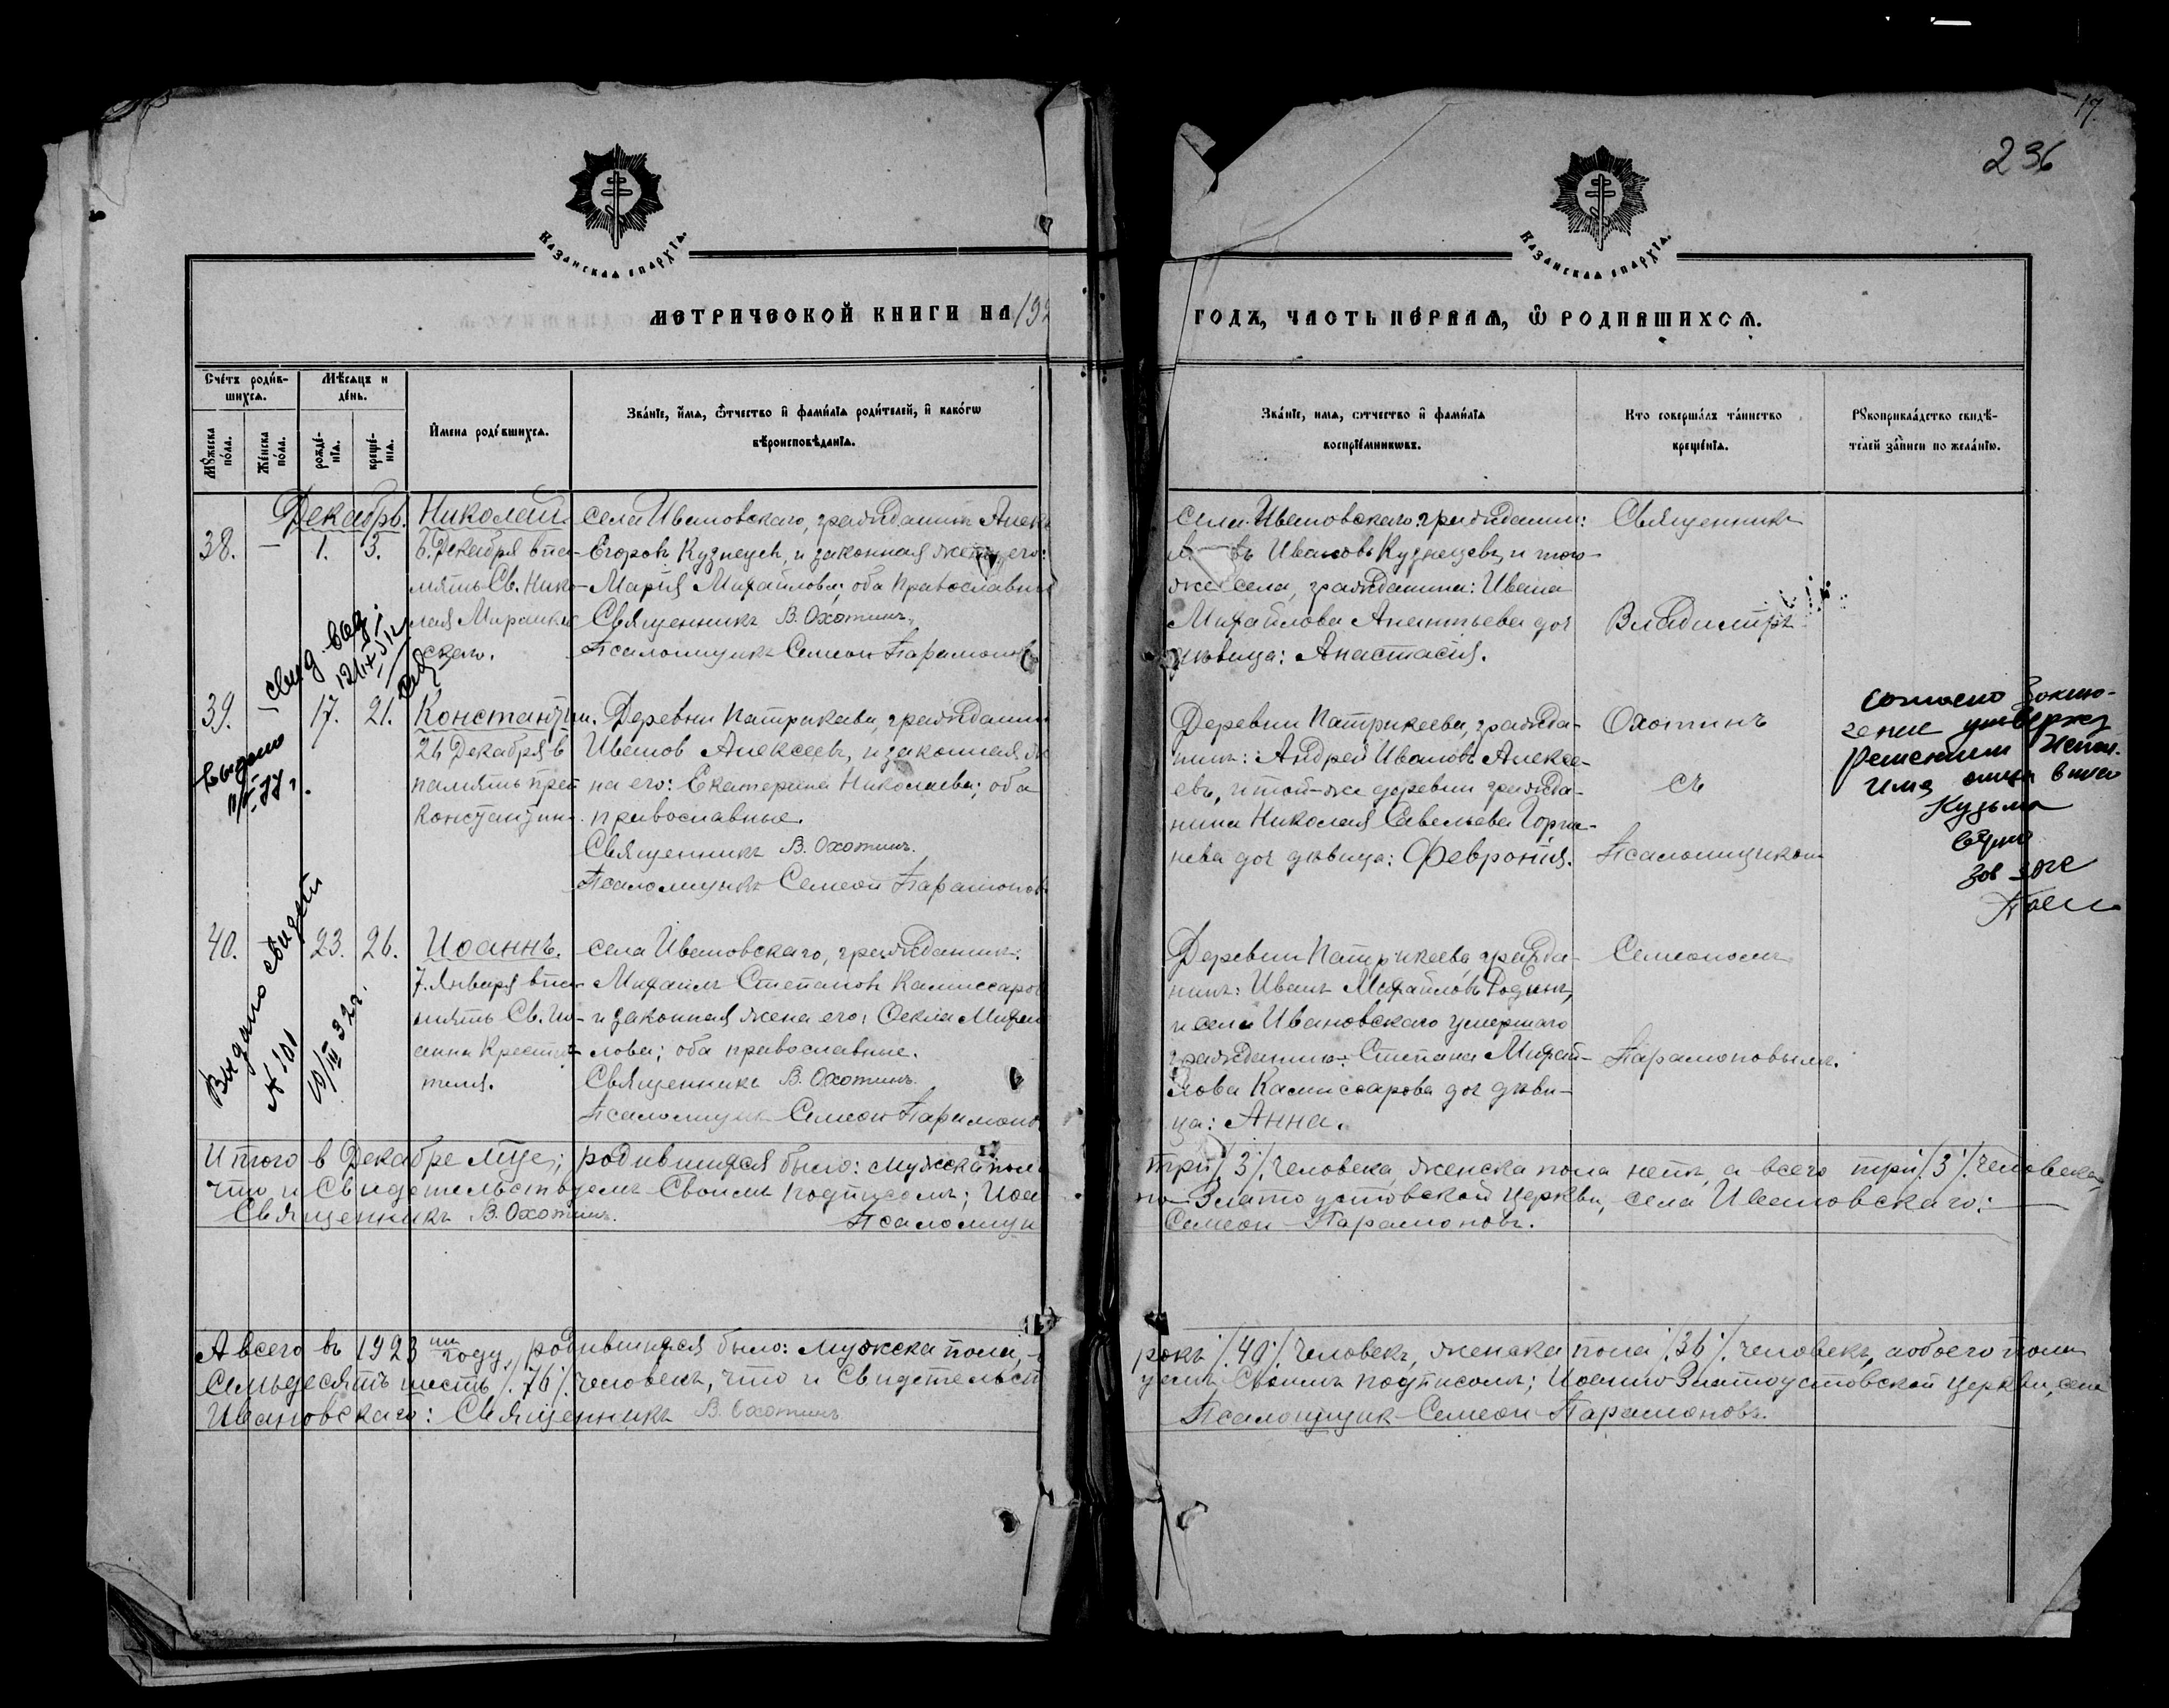 17.
236
Казанская епархїа.
Казанская епархїа.
Метрической книги на 192
годъ, часть первая, ѿ родившихся.
Счётъ родив-
шихся.
Мѣсяцъ и
день.
Мужеска
пола.
Женска
пола.
рожде-
нїя.
креще-
нїя.
Имена родившихся.
Званїе, имя, отчество и фамилїя родителей, и какогѡ
вѣроисповѣданїя.
Званїе, имя, отчество и фамилїя
воспрїемникѡвъ.
Кто совершалъ таинство
крещенїя.
Рукоприкладство свидѣ-
телей записи по желанїю.
Декабрь.
38. — 1. 3.
Николай.
6. Декабря въ па-
мять Св. Нико-
лая Мирлика
скаго.
села Ивановскаго, гражданинъ Алек
Егоровъ Кузнецовъ, и законная жена его:
Марія Михайлова; оба православные
Священникъ В. Охотинъ.
Псаломщикъ Семеон Парамонов
села Ивановскаго: гражданин:
въ Ивановъ Кузнецовъ, и того-
же села, гражданина: Ивана
Михайлова Ананьева доч
дѣвица: Анастасія.
Священникъ
Владимиръ
свид.
39. — 17. 21.
Выдано
Константин.
26 Декабря в
память преп
Константин.
Деревни Патрикеева, гражданин
Иванов Алексеевъ, и законная же
на его: Екатерина Николаева; оба
православные.
Священникъ В. Охотинъ.
Псаломщикъ Семеон Парамонов
Деревни Патрикеева, гражда-
нинъ: Андрей Ивановъ Алексе-
евъ, и той-же деревни гражда-
нина Николая Савельева Горш-
нева доч дѣвица: Феврония.
Охотинъ
съ
Псаломщиком
согласно Заклю-
чение утвержд
решением Испол.
имя отца
Кузьма
40. 23. 26.
Выдано свидет
№ 101
10/III 32 г.
Иоаннъ.
7. Января въ па-
мять Св. Ио-
анна Крести-
теля.
села Ивановскаго, гражданинъ:
Михаилъ Степанов Камиссаров
и законная жена его: Фекла Михай
лова; оба православные.
Священникъ В. Охотинъ.
Псаломщикъ Семеон Парамонов
Деревни Патрикеева гражда-
нинъ: Иванъ Михайловъ Родинъ,
и села Ивановскаго умершаго
гражданина: Степана Михай-
лова Камиссарова доч дѣви-
ца: Анна.
Семеономъ
Парамоновымъ.
Итого в Декабре м-це; родившихся было: мужска пола
три /.3./. человека, женска пола нетъ, а всего три /.3./. человека,
что и свидетельствуемъ своимъ подписомъ; Иоан
но-Златоустовской Церкви, села Ивановскаго:
Священникъ В. Охотинъ. Псаломщи
Семеон Парамоновъ.
А всего въ 1923 ᵐ году, родившихся было: мужска пола, со
рокъ /.40./. человекъ, женска пола /.36./. человекъ, а обоего пола
Семьдесятъ шесть /.76./. человекъ, что и Свидетельст
уемъ Своимъ подписомъ; Иоанно-Златоустовской Церкви, села
Ивановскаго: Священникъ В. Охотинъ
Псаломщик Семеон Парамоновъ.